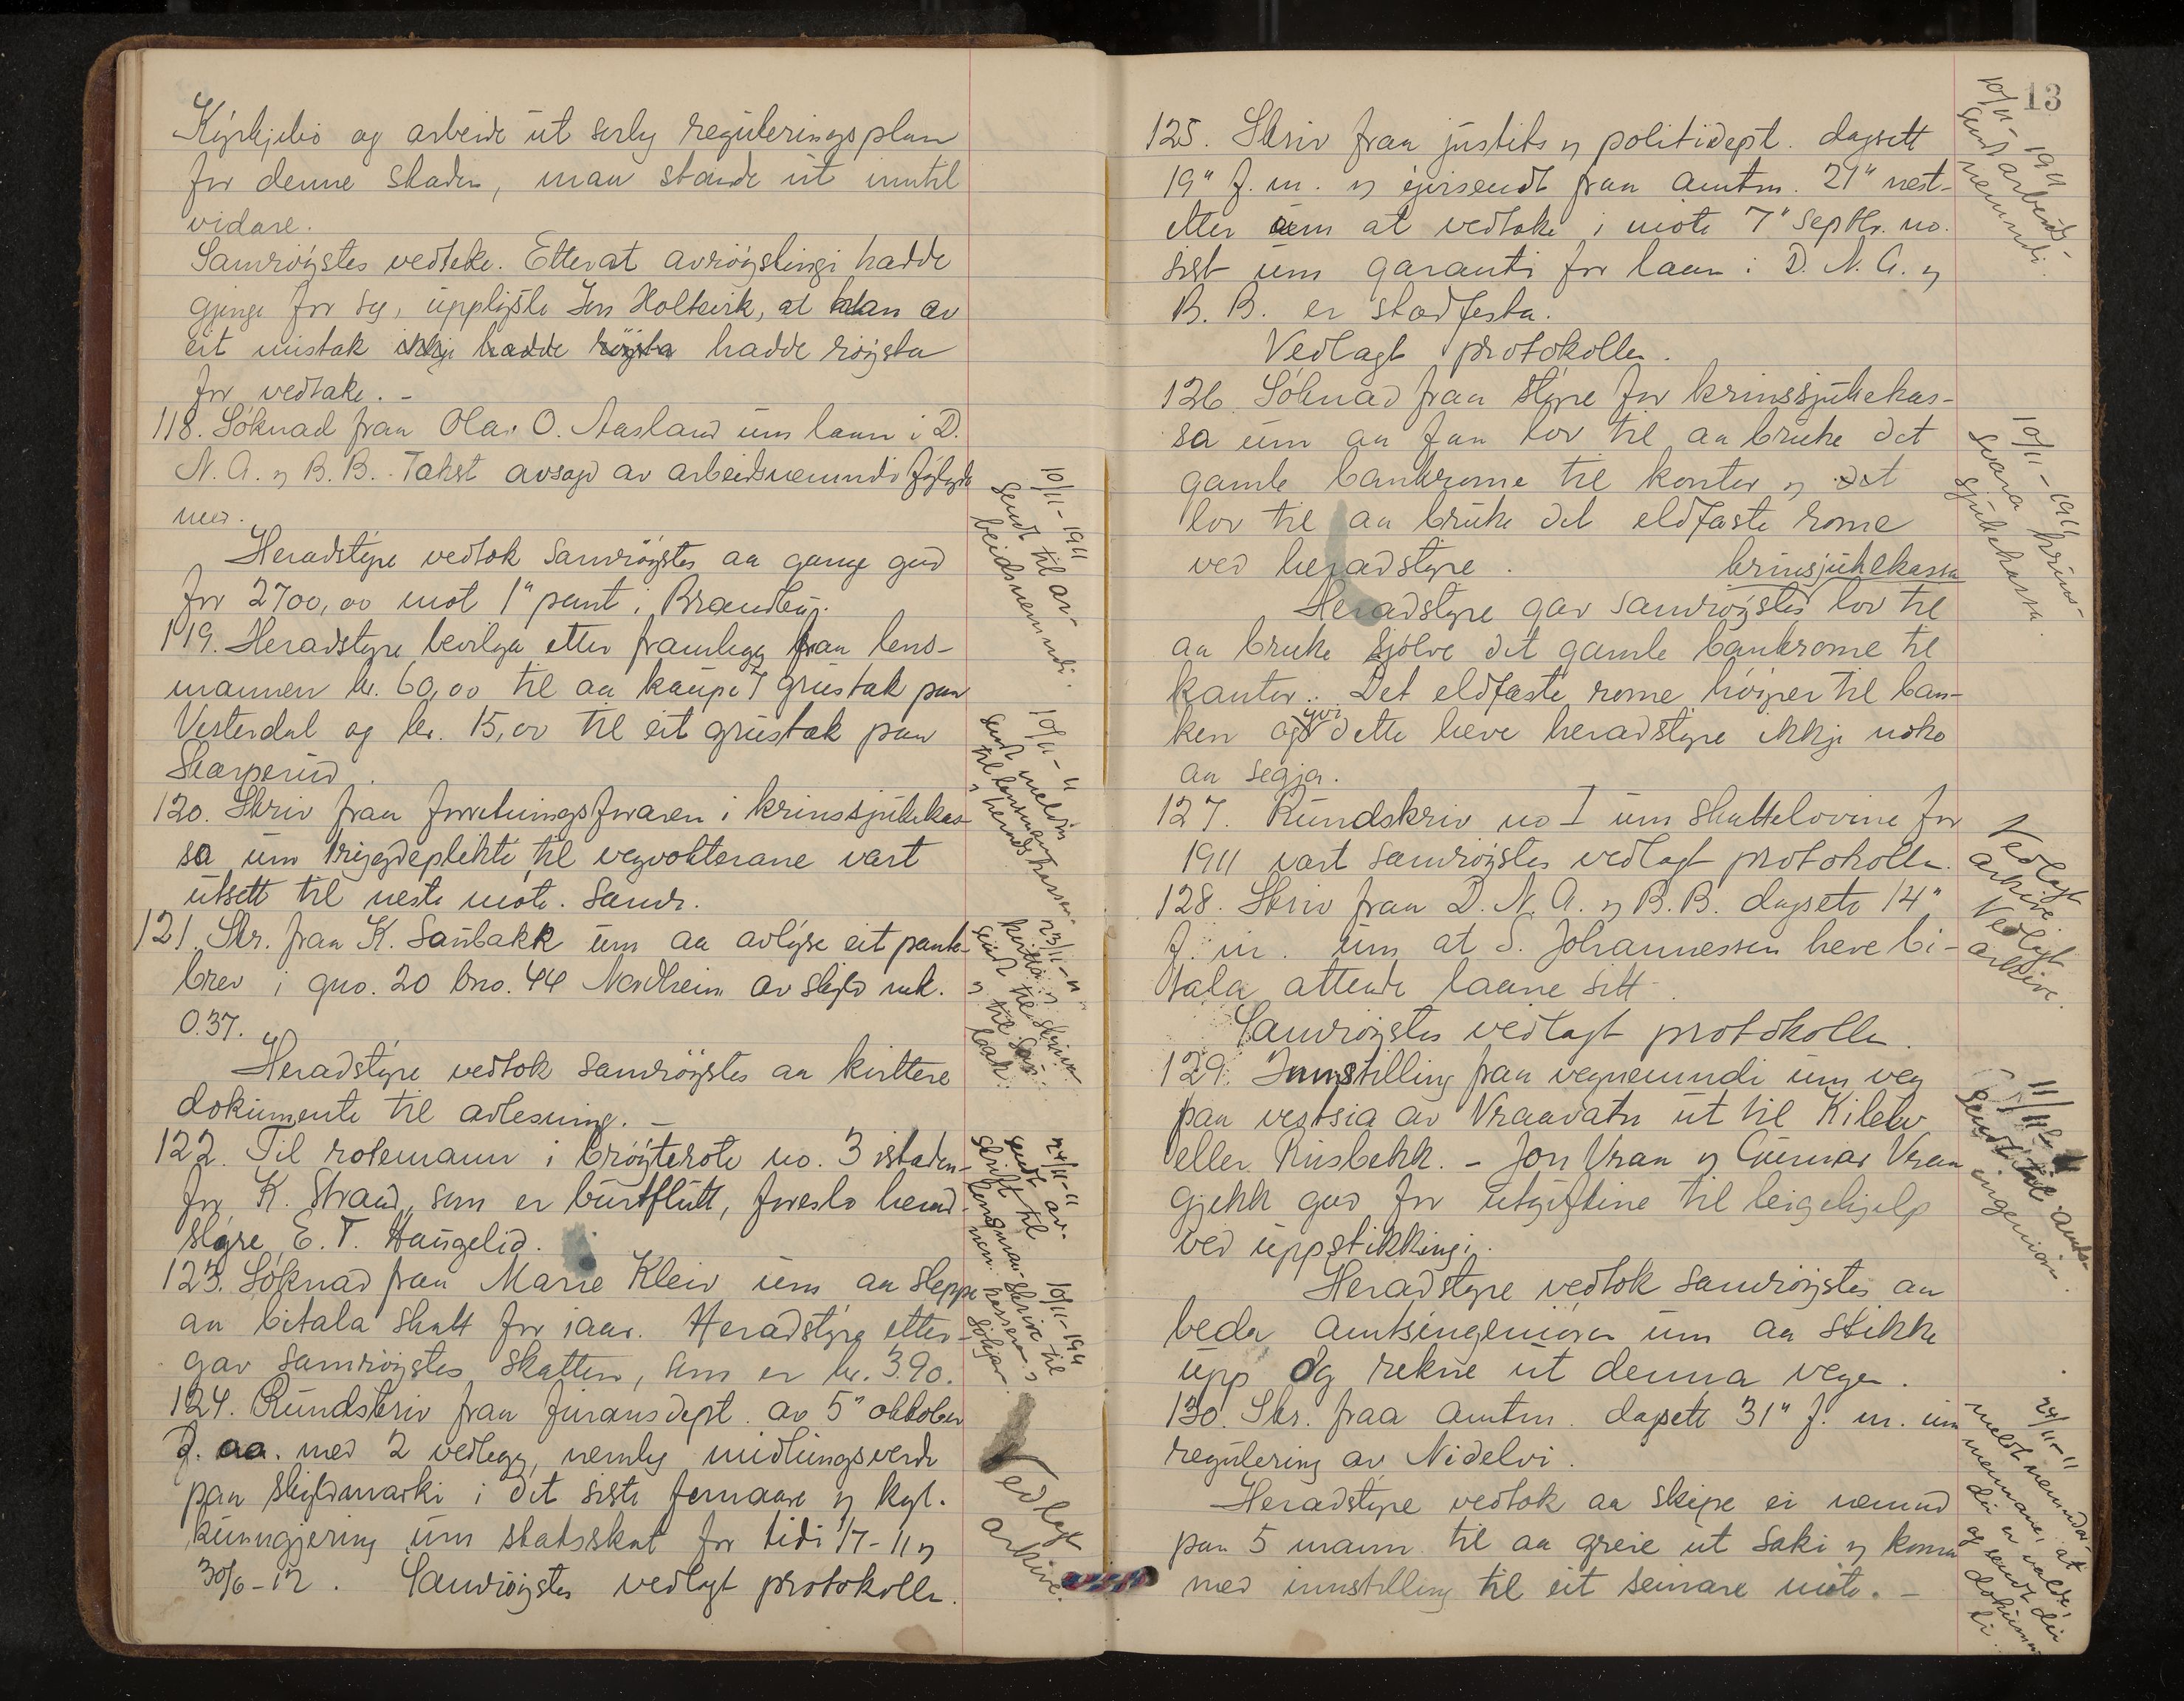 Kyrkjebø og arbeide ut serleg reguleringsplan
for denne staden, maa stande ut inntil
vidare.
Samrøystes vedteke. Etterat avrøystingi hadde
gjenge for seg, upplyste Jens Holtvik, at han av
eit mistak ikkje hadde røysta hadde røysta
for vedtake. -
118. Søknad fraa Olav O. Aasland um laan i D.
N. A. og B. B. - Takst avsagd av arbeidsnemndi fylgde
med.
Heradstyre vedtok samrøystes aa gange god
for 2700,00 mot 1" pant i
119. Heradstyre bevilga etter framlegg fraa lens-
mannen kr. 60,00 til aa kaupe 7 grustak paa
Vesterdal og kr. 15,00 til eit grustak paa
Skarperud.
120. Skriv fraa forretningsføraren i krinssjukekas-
sa um trygdeplikti til vegvoktarane vart
utsett til neste møte. Samr.
121. Skr. fraa K. Saubakk um aa avlyse eit pante-
brev i gno. 20 bno. 44 Nordheim av skyld mk.
0.37.
Heradstyre vedtok samrøystes aa kvittere
dokumente til avlesning. -
122. Til rotemann i brøyterote no. 3 istaden-
for K. Straand, som er burtflutt, foreslo herad-
styre E. T. Haugelid.
123. Søknad fraa Marie Kleiv um aa sleppe
aa bitala skatt for iaar. Heradstyre etter-
gav samrøystes skatten, som er kr. 3.90.
124. Rundskriv fraa finansdept. av 5" oktober
f. aa. med 2 vedlegg, nemleg midlungsverde
paa skyldmarki i det siste femaare og kgl.
kunngjering um statsskat for tidi 1/7-11 og
30/6-12. Samrøystes vedlagt protokollen.
10/11-1911
Sendt til ar-
beidsnemndi.
10/11-11
Send melding
til lensmann
og heradskassar.
23/11-11
kvitta og
sendt til skrivar
og til Sau-
bakk.
24/11-11
sendt av-
skrift til
lensmannen.
10/11-1911
Skrive til
kassaren og
søkjar.
Vedlagt
arkive.
13
125. Skriv fraa justits og politidept. dagsett
19" f. m. og yversendt fraa amtm. 21" nest-
etter um at vedtake i møte 7" septbr. no.
sist um garanti for laan i D. N. A. og
B. B. er stadfesta.
Vedlagt protokollen.
126. Søknad fraa styre for krinssjukekas-
sa um aa faa lov til aa bruke det
gamle bankrome til kontor og det
lov til aa bruke det eldfaste rome
ved heradstyre.
krinsjukekassa
Heradstyre gav samrøystes lov til
aa bruke sjølve det gamle bankrome til
kantor. Det eldfaste rome høyrer til ban-
ken og yvi dette heve heradstyre ikkje noko
aa segja.
127. Rundskriv no I um skattelovine for
1911 vart samrøystes vedlagt protokollen.
128. Skriv fraa D. N. A. og B. B. dagsett 14"
f. m. um at S. Johannessen heve bi-
tala attende laane sitt.
Samrøystes vedlagt protokollen.
129. Innstilling fraa vegnemndi um veg
paa vestsia av Vraavatn ut til Kilen
eller Risbekk. - Jon Vraa og Gunnar Vraa
gjekk god for utgiftine til leigehjelp
ved uppstikkingi.
Heradstyre vedtok samrøystes aa
beda amtsingeniøren um aa stikke
upp og rekne ut denna vegen.
130. Skr. fraa amtm. dagsett 31" f. m. um
regulering av Nidelvi.
Heradstyre vedtok aa skipe ei nemnd
paa 5 mann til aa greie ut saki og koma
med innstilling til eit seinare møte. -
10/11-1911
Sendt arbeids-
nemndi.
10/11-1911
Svara krins-
sjukekassa.
Vedlagt
arkive.
Vedlagt
arkive.
11/11
Sendt til amts-
ingeniøren.
24/11-11
meldt nemndar-
mennane, at
dei er valde,
og sendt dei
dokumen-
ti.